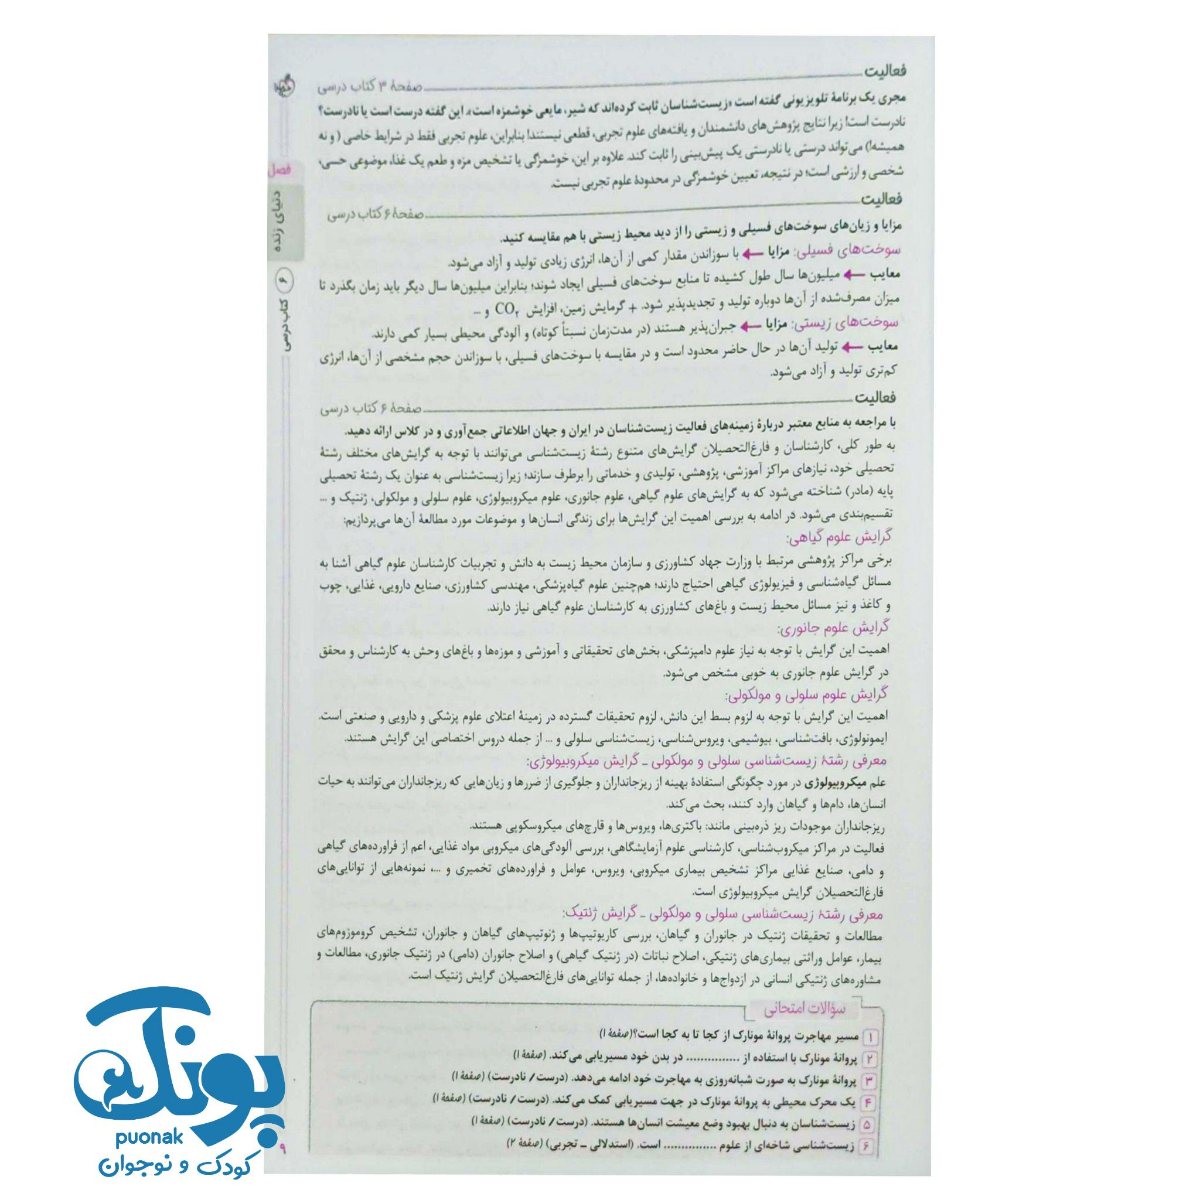 فعالیت
صفحهٔ ۳ کتاب درسی
مجری یک برنامهٔ تلویزیونی گفته است «زیست‌شناسان ثابت کرده‌اند که شیر، مایعی خوشمزه است». این گفته درست است یا نادرست؟
نادرست است! زیرا نتایج پژوهش‌های دانشمندان و یافته‌های علوم تجربی، قطعی نیستند! بنابراین، علوم تجربی فقط در شرایط خاصی (و نه
همیشه!) می‌تواند درستی یا نادرستی یک پیش‌بینی را ثابت کند. علاوه بر این، خوشمزگی یا تشخیص مزه و طعم یک غذا، موضوعی حسی،
شخصی و ارزشی است؛ در نتیجه، تعیین خوشمزگی در محدودهٔ علوم تجربی نیست.
فعالیت
صفحهٔ ۶ کتاب درسی
مزایا و زیان‌های سوخت‌های فسیلی و زیستی را از دید محیط زیستی با هم مقایسه کنید.
سوخت‌های فسیلی: مزایا ← با سوزاندن مقدار کمی از آن‌ها، انرژی زیادی تولید و آزاد می‌شود.
معایب ← میلیون‌ها سال طول کشیده تا منابع سوخت‌های فسیلی ایجاد شوند؛ بنابراین میلیون‌ها سال دیگر باید زمان بگذرد تا
میزان مصرف‌شده از آن‌ها دوباره تولید و تجدیدپذیر شود. + گرمایش زمین، افزایش CO₂ و ...
سوخت‌های زیستی: مزایا ← جبران‌پذیر هستند (در مدت‌زمان نسبتاً کوتاه) و آلودگی محیطی بسیار کمی دارند.
معایب ← تولید آن‌ها در حال حاضر محدود است و در مقایسه با سوخت‌های فسیلی، با سوزاندن حجم مشخصی از آن‌ها، انرژی
کم‌تری تولید و آزاد می‌شود.
فعالیت
صفحهٔ ۶ کتاب درسی
با مراجعه به منابع معتبر دربارهٔ زمینه‌های فعالیت زیست‌شناسان در ایران و جهان اطلاعاتی جمع‌آوری و در کلاس ارائه دهید.
به طور کلی، کارشناسان و فارغ‌التحصیلان گرایش‌های متنوع رشتهٔ زیست‌شناسی می‌توانند با توجه به گرایش‌های مختلف رشتهٔ
تحصیلی خود، نیازهای مراکز آموزشی، پژوهشی، تولیدی و خدماتی را برطرف سازند؛ زیرا زیست‌شناسی به عنوان یک رشتهٔ تحصیلی
پایه (مادر) شناخته می‌شود که به گرایش‌های علوم گیاهی، علوم جانوری، علوم میکروبیولوژی، علوم سلولی و مولکولی، ژنتیک و ...
تقسیم‌بندی می‌شود. در ادامه به بررسی اهمیت این گرایش‌ها برای زندگی انسان‌ها و موضوعات مورد مطالعهٔ آن‌ها می‌پردازیم:
گرایش علوم گیاهی:
برخی مراکز پژوهشی مرتبط با وزارت جهاد کشاورزی و سازمان محیط زیست به دانش و تجربیات کارشناسان علوم گیاهی آشنا به
مسائل گیاه‌شناسی و فیزیولوژی گیاهی احتیاج دارند؛ هم‌چنین علوم گیاه‌پزشکی، مهندسی کشاورزی، صنایع دارویی، غذایی، چوب
و کاغذ و نیز مسائل محیط زیست و باغ‌های کشاورزی به کارشناسان علوم گیاهی نیاز دارند.
گرایش علوم جانوری:
اهمیت این گرایش با توجه به نیاز علوم دامپزشکی، بخش‌های تحقیقاتی و آموزشی و موزه‌ها و باغ‌های وحش به کارشناس و محقق
در گرایش علوم جانوری به خوبی مشخص می‌شود.
گرایش علوم سلولی و مولکولی:
اهمیت این گرایش با توجه به لزوم بسط این دانش، لزوم تحقیقات گسترده در زمینهٔ اعتلای علوم پزشکی و دارویی و صنعتی است.
ایمونولوژی، بافت‌شناسی، بیوشیمی، ویروس‌شناسی، زیست‌شناسی سلولی و ... از جمله دروس اختصاصی این گرایش هستند.
معرفی رشتهٔ زیست‌شناسی سلولی و مولکولی ـ گرایش میکروبیولوژی:
علم میکروبیولوژی در مورد چگونگی استفادهٔ بهینه از ریزجانداران و جلوگیری از ضررها و زیان‌هایی که ریزجانداران می‌توانند به حیات
انسان‌ها، دام‌ها و گیاهان وارد کنند، بحث می‌کند.
ریزجانداران موجودات ریز ذره‌بینی مانند: باکتری‌ها، ویروس‌ها و قارچ‌های میکروسکوپی هستند.
فعالیت در مراکز میکروب‌شناسی، کارشناسی علوم آزمایشگاهی، بررسی آلودگی‌های میکروبی مواد غذایی، اعم از فراورده‌های گیاهی
و دامی، صنایع غذایی مراکز تشخیص بیماری میکروبی، ویروس، عوامل و فراورده‌های تخمیری و ...، نمونه‌هایی از توانایی‌های
فارغ‌التحصیلان گرایش میکروبیولوژی است.
معرفی رشتهٔ زیست‌شناسی سلولی و مولکولی ـ گرایش ژنتیک:
مطالعات و تحقیقات ژنتیک در جانوران و گیاهان، بررسی کاریوتیپ‌ها و ژنوتیپ‌های گیاهان و جانوران، تشخیص کروموزوم‌های
بیمار، عوامل وراثتی بیماری‌های ژنتیکی، اصلاح نباتات (در ژنتیک گیاهی) و اصلاح جانوران (دامی) در ژنتیک جانوری، مطالعات و
مشاوره‌های ژنتیکی انسانی در ازدواج‌ها و خانواده‌ها، از جمله توانایی‌های فارغ‌التحصیلان گرایش ژنتیک است.
سؤالات امتحانی
۱ مسیر مهاجرت پروانهٔ مونارک از کجا تا به کجا است؟ (صفحهٔ ۱)
۲ پروانهٔ مونارک با استفاده از ............... در بدن خود مسیریابی می‌کند. (صفحهٔ ۱)
۳ پروانهٔ مونارک به صورت شبانه‌روزی به مهاجرت خود ادامه می‌دهد. (درست / نادرست) (صفحهٔ ۱)
۴ یک محرک محیطی به پروانهٔ مونارک در جهت مسیریابی کمک می‌کند. (درست / نادرست) (صفحهٔ ۱)
۵ زیست‌شناسان به دنبال بهبود وضع معیشت انسان‌ها هستند. (درست / نادرست) (صفحهٔ ۱)
۶ زیست‌شناسی شاخه‌ای از علوم ............... است. (استدلالی ـ تجربی) (صفحهٔ ۲)
فصل
دنیای زنده
۶ کتاب درسی
۹
پونک
puonak
کودک و نوجوان